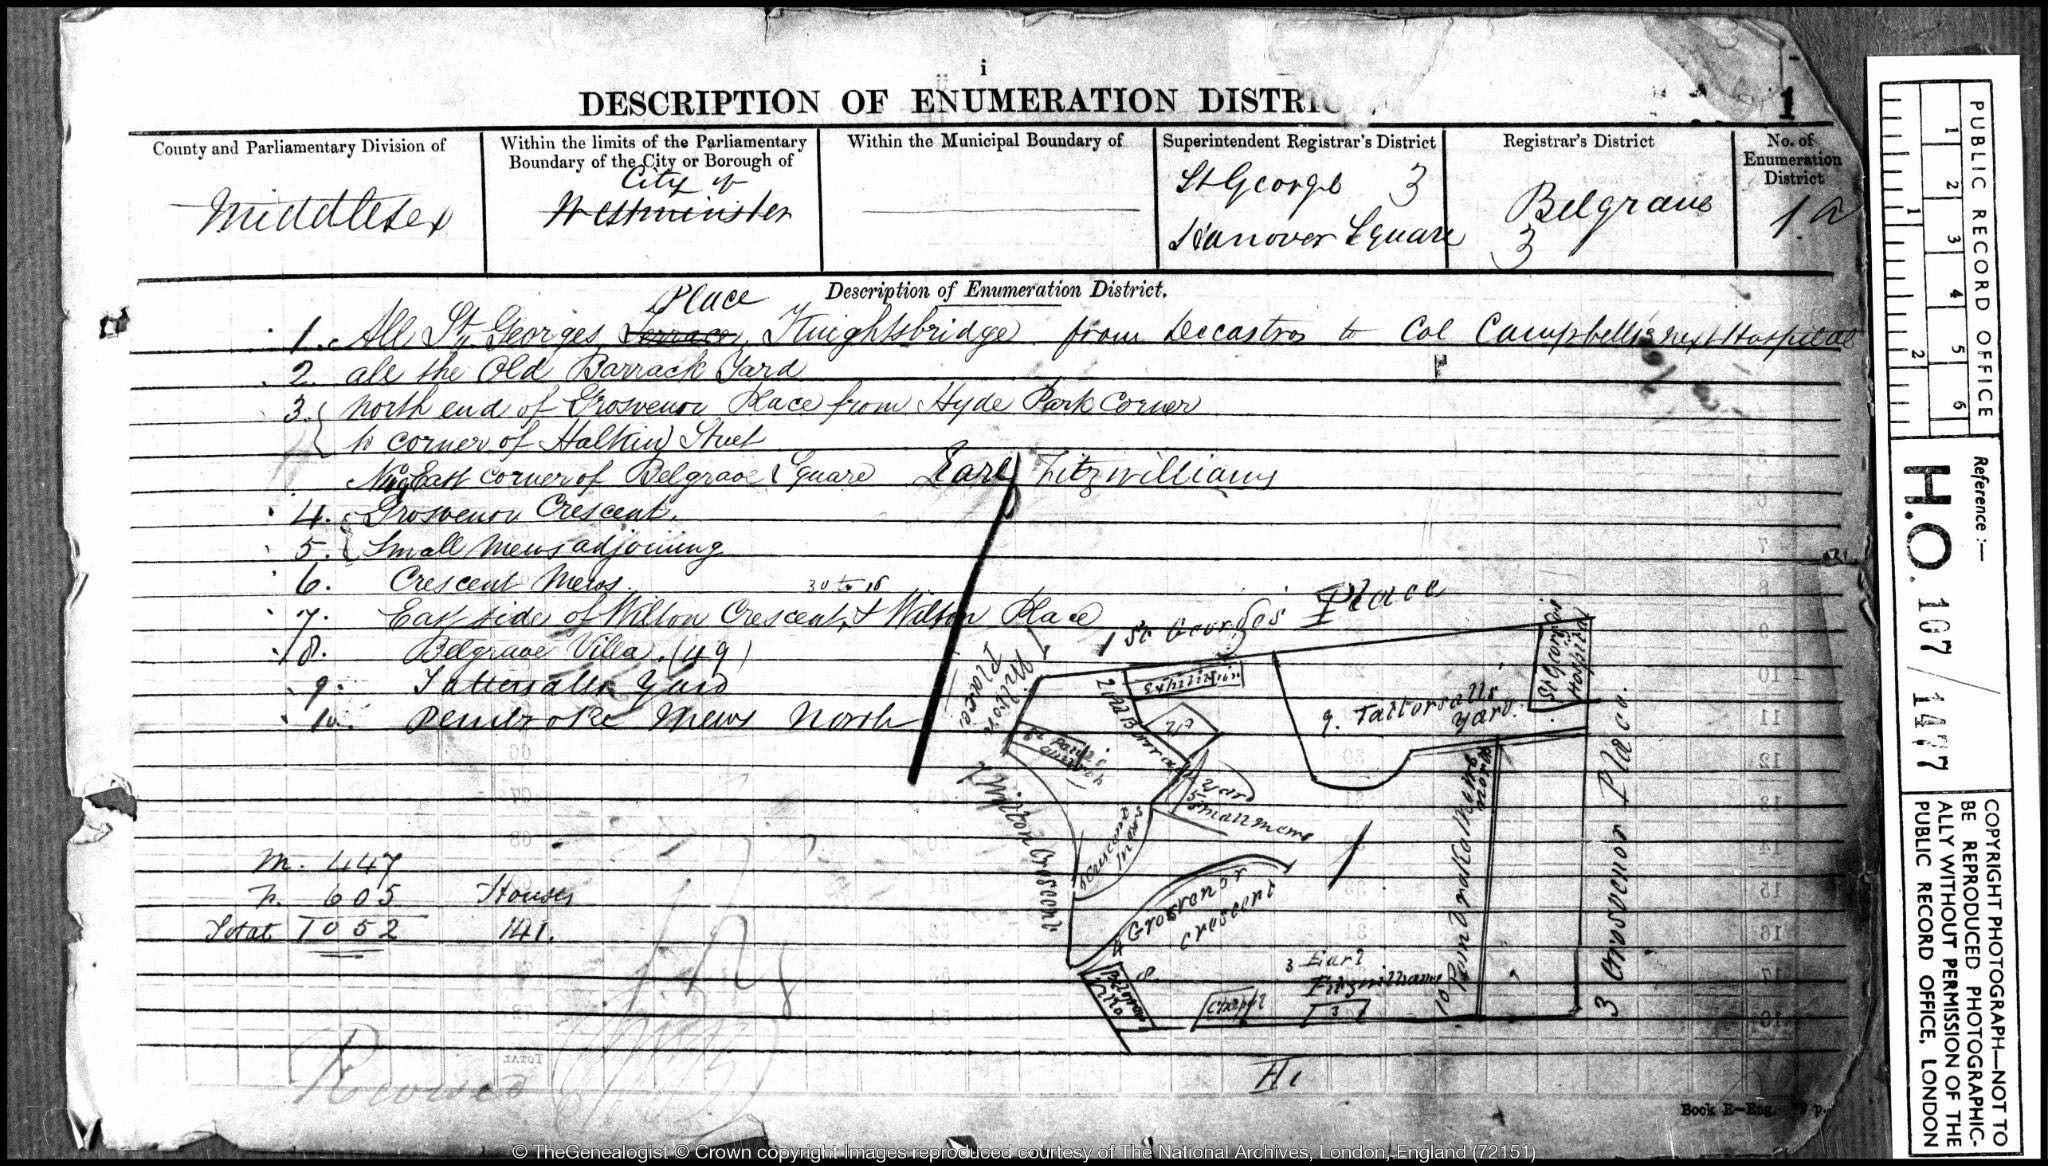 i
DESCRIPTION OF ENUMERATION DISTRI
1
County and Parliamentary Division of
Middlesex
Within the limits of the Parliamentary
Boundary of the City or Borough of
City of
Westminster
Within the Municipal Boundary of
Superintendent Registrar's District
St George 3
Hanover Square
Registrar's District
Belgrave
3
No. of
Enumeration
District
1.a
Description of Enumeration District.
Place
1. All St. Georges Terrace, Knightsbridge from Decastros to Col Campbells next Hospital
2. all the Old Barrack Yard
3. North end of Grosvenor Place from Hyde Park Corner
to corner of Halkin Street
East corner of Belgrave Square Earl Fitzwilliams
4. Grosvenor Crescent.
5. Small Mews adjoining
6. Crescent Mews.
30 to 16
7. East side of Wilton Crescent, & Wilton Place
8. Belgrave Villa. (49)
9. Tattersalls Yard
10. Pembroke Mews North
M. 447
F. 605 Houses
Total 1052 141.
Revised
1 St George's Place
7 Wilton Place
St Paul's Church
2 Old Barrack Yard
St George's Hospital
9. Tattersalls Yard.
5 Small Mews
7 Wilton Crescent
6 Crescent Mews
4 Grosvenor Crescent
8. Belgrave Villa
Chapel
3 Earl Fitzwilliams
3
10 Mews North
3 Grosvenor Place.
Book E—Eng.
PUBLIC RECORD OFFICE
1 2 3 4 5 6
1 2
Reference:—
H.O. 107/1477
COPYRIGHT PHOTOGRAPH—NOT TO
BE REPRODUCED PHOTOGRAPHIC-
ALLY WITHOUT PERMISSION OF THE
PUBLIC RECORD OFFICE, LONDON
© TheGenealogist © Crown copyright Images reproduced courtesy of The National Archives, London, England (72151)